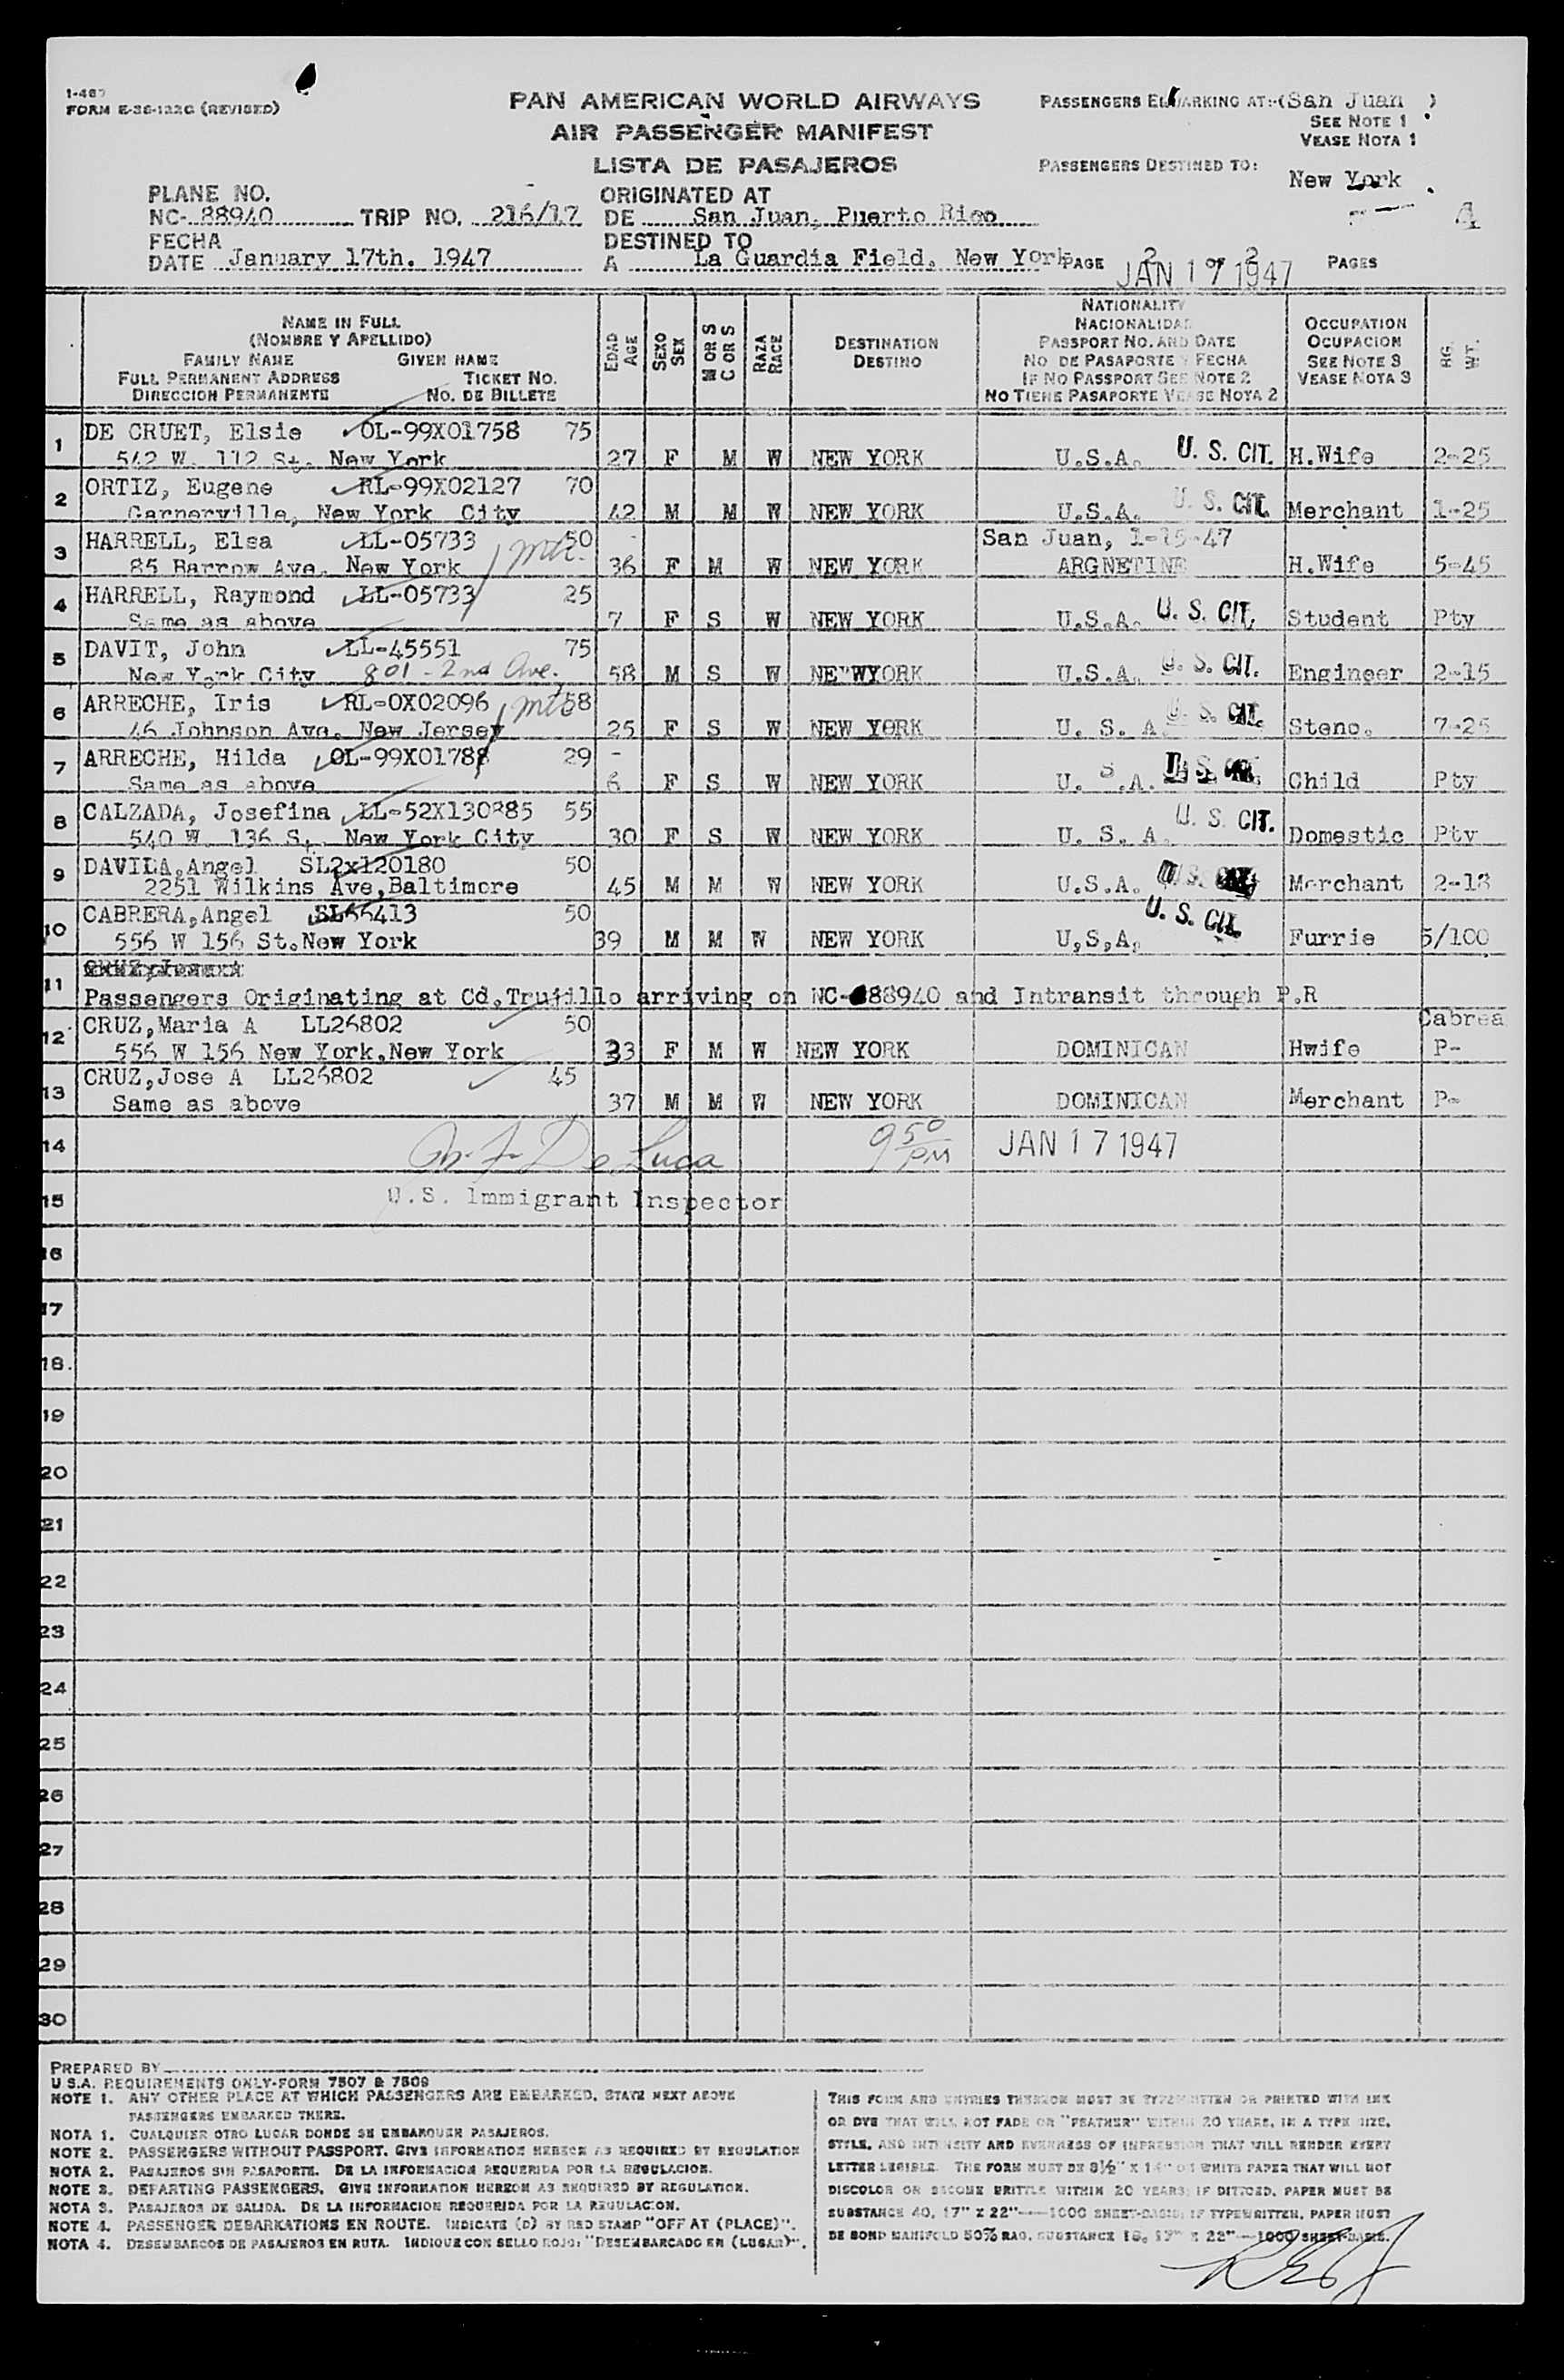 1-467
FORM E-36-122G (REVISED)
PAN AMERICAN WORLD AIRWAYS
AIR PASSENGER MANIFEST
LISTA DE PASAJEROS
PASSENGERS EMBARKING AT:-(San Juan )
SEE NOTE 1
VEASE NOTA 1
PASSENGERS DESTINED TO:
New York
4
PLANE NO.
NC- 88940 TRIP NO. 216/17
ORIGINATED AT
DE San Juan, Puerto Rico
FECHA
DATE January 17th. 1947
DESTINED TO
A La Guardia Field, New York
PAGE 2 OF 2 PAGES
JAN 17 1947
NAME IN FULL
(NOMBRE Y APELLIDO)
FAMILY NAME GIVEN NAME
FULL PERMANENT ADDRESS TICKET NO.
DIRECCION PERMANENTE NO. DE BILLETE
EDAD
AGE
SEXO
SEX
M OR S
C OR S
RAZA
RACE
DESTINATION
DESTINO
NATIONALITY
NACIONALIDAD
PASSPORT NO. AND DATE
NO DE PASAPORTE Y FECHA
IF NO PASSPORT SEE NOTE 2
NO TIENE PASAPORTE VEASE NOTA 2
OCCUPATION
OCUPACION
SEE NOTE 3
VEASE NOTA 3
WT.
1 DE CRUET, Elsie OL-99X01758 75
542 W. 112 St. New York 27 F M W NEW YORK U.S.A. U. S. CIT. H.Wife 2-25
2 ORTIZ, Eugene RL-99X02127 70
Garnerville, New York City 42 M M W NEW YORK U.S.A. U. S. CIT. Merchant 1-25
3 HARRELL, Elsa LL-05733 50 San Juan, 1-15-47
85 Barrow Ave. New York 36 F M W NEW YORK ARGNETINE H.Wife 5-45
4 HARRELL, Raymond LL-05733 25
Same as above 7 F S W NEW YORK U.S.A. U. S. CIT. Student Pty
5 DAVIT, John LL-45551 75
New York City 801 - 2nd Ave. 58 M S W NE"WYORK U.S.A. U. S. CIT. Engineer 2-15
6 ARRECHE, Iris RL-0X02096 58
46 Johnson Ave. New Jersey 25 F S W NEW YORK U. S. A. U. S. CIT. Steno. 7-25
7 ARRECHE, Hilda OL-99X01788 29
Same as above 6 F S W NEW YORK U. S .A. U. S. CIT. Child Pty
8 CALZADA, Josefina LL-52X130885 55
540 W. 136 St. New York City 30 F S W NEW YORK U. S. A. U. S. CIT. Domestic Pty
9 DAVILA,Angel SL2x120180 50
2251 Wilkins Ave,Baltimore 45 M M W NEW YORK U.S.A. U. S. CIT. Merchant 2-18
10 CABRERA,Angel SL66413 50
556 W 156 St.New York 39 M M W NEW YORK U,S,A, U. S. CIT. Furrie 5/100
11
Passengers Originating at Cd.Trujillo arriving on NC-88940 and Intransit through P.R
Cabrea
12 CRUZ,Maria A LL26802 50
556 W 156 New York,New York 33 F M W NEW YORK DOMINICAN Hwife P-
13 CRUZ,Jose A LL26802 45
Same as above 37 M M W NEW YORK DOMINICAN Merchant P-
14 De Luca 9 50 PM JAN 17 1947
15 U.S. Immigrant Inspector
16
17
18
19
20
21
22
23
24
25
26
27
28
29
30
PREPARED BY
U S.A. REQUIREMENTS ONLY-FORM 7507 & 7509
NOTE 1. ANY OTHER PLACE AT WHICH PASSENGERS ARE EMBARKED, STATE NEXT ABOVE
PASSENGERS EMBARKED THERE.
NOTA 1. CUALQUIER OTRO LUGAR DONDE SE EMBARQUEN PASAJEROS.
NOTE 2. PASSENGERS WITHOUT PASSPORT. GIVE INFORMATION HEREON AS REQUIRED BY REGULATION
NOTA 2. PASAJEROS SIN PASAPORTE. DE LA INFORMACION REQUERIDA POR LA REGULACION.
NOTE 3. DEPARTING PASSENGERS. GIVE INFORMATION HEREON AS REQUIRED BY REGULATION.
NOTA 3. PASAJEROS DE SALIDA. DE LA INFORMACION REQUERIDA POR LA REGULACION.
NOTE 4. PASSENGER DEBARKATIONS EN ROUTE. INDICATE (D) BY RED STAMP "OFF AT (PLACE)".
NOTA 4. DESEMBARCOS DE PASAJEROS EN RUTA. INDIQUE CON SELLO ROJO: "DESEMBARCADO EN (LUGAR)".
THIS FORM AND ENTRIES THEREON MUST BE TYPEWRITTEN OR PRINTED WITH INK
OR DYE THAT WILL NOT FADE OR "FEATHER" WITHIN 20 YEARS, IN A TYPE SIZE,
STYLE, AND INTENSITY AND EVENNESS OF IMPRESSION THAT WILL RENDER EVERY
LETTER LEGIBLE. THE FORM MUST BE 8½" X 14" ON WHITE PAPER THAT WILL NOT
DISCOLOR OR BECOME BRITTLE WITHIN 20 YEARS; IF DITTOED, PAPER MUST BE
SUBSTANCE 40, 17" X 22"—1000 SHEET-BASIS; IF TYPEWRITTEN, PAPER MUST
BE BOND MANIFOLD 50% RAG, SUBSTANCE 16, 17" X 22"—1000 SHEET-BASIS.